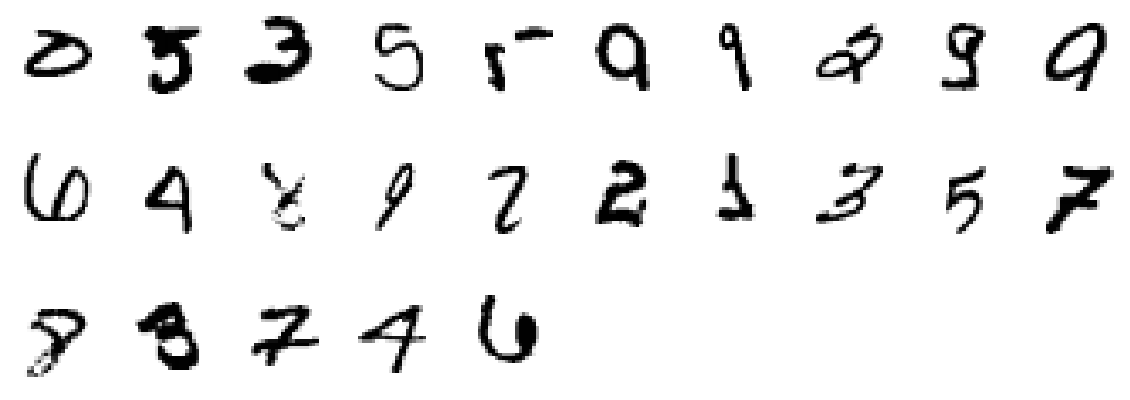 0 5 3 5 5 9 9 2 9 9
6 4 8 9 2 2 1 3 5 7
8 8 7 4 6